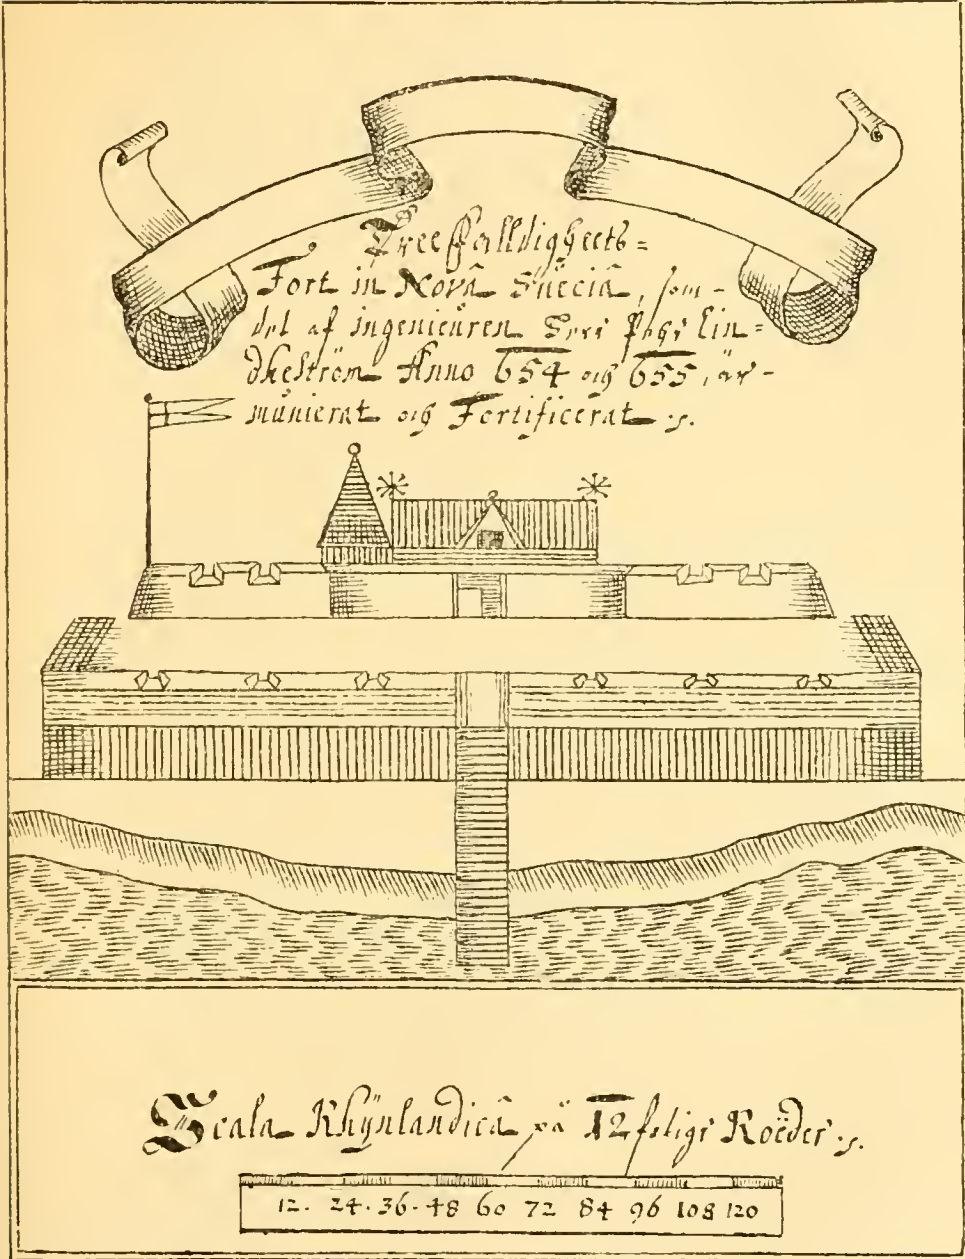 Treefalldigheets=
Fort in Novâ Suēciâ, som-
det af ingenieuren Pehr Lin=
dheström Anno 654 och 655, är-
munierat och Fortificerat :s.
Scala Rhÿnlandicâ på 12 føtige Roëder :s.
12. 24. 36. 48 60 72 84 96 108 120